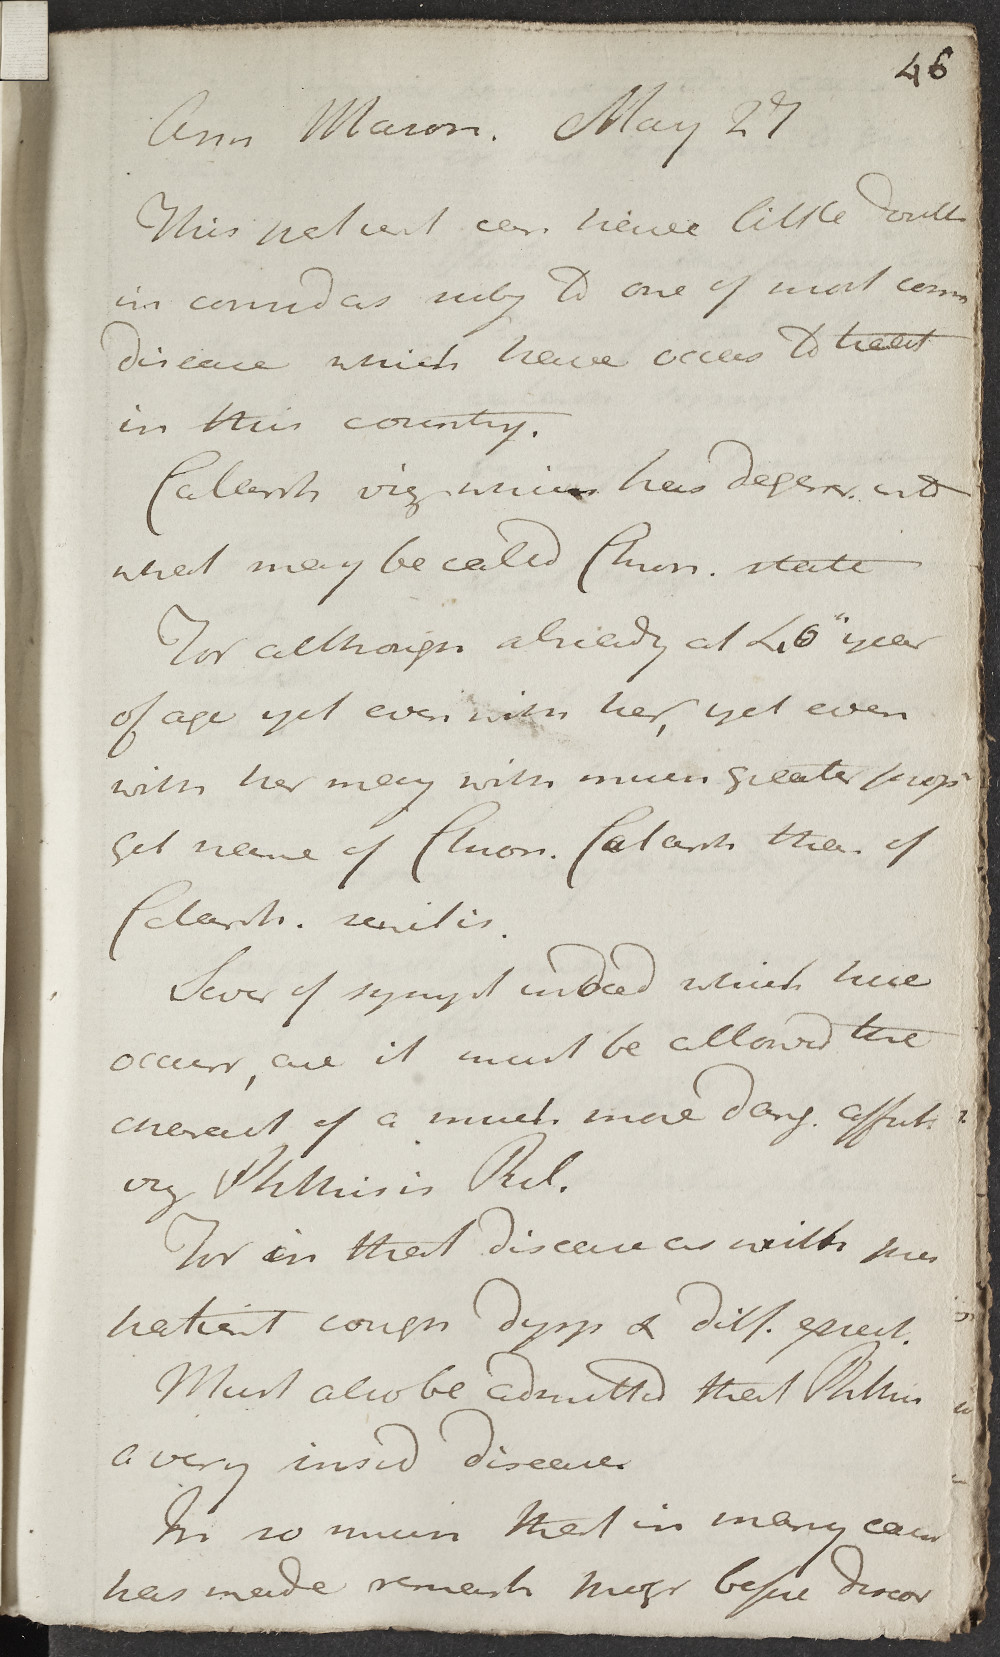 46
Ann Mason. May 27
This patient can have little doubt
in consid as subj to one of most com
disease which have occas to treat
in this country.
Catarrh viz which has degener. into
what may be called Chron. state
For although already at 46th year
of age yet even with her, yet even
with her may with much greater prop
get name of Chron. Catarrh than of
Catarrh. senilis.
Sever of sympt indeed which here
occurr, are it must be allowed the
charact of a much more dang. affect.
viz Phthisis Pul.
For in that disease as with pres
patient cough dysp & diff. expect.
Must also be admitted that Phthis
a very insid disease
In so much that in many case
has made remark progr before discov